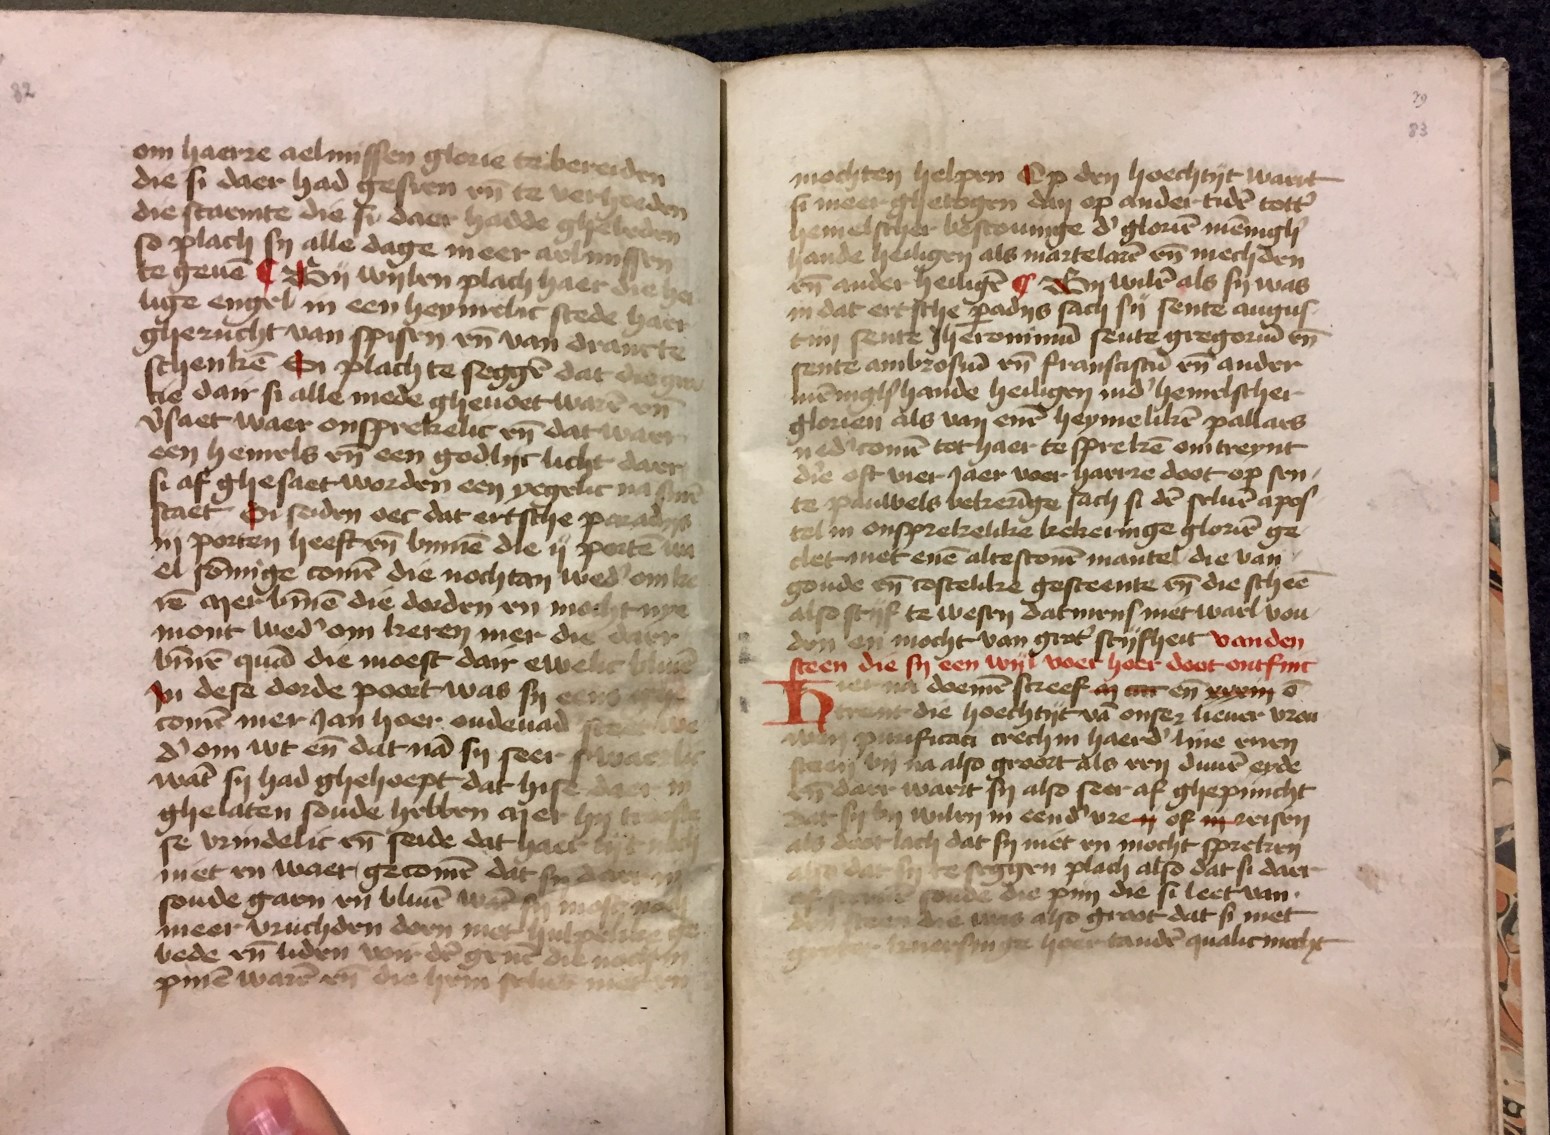 82
om haerre aelmissen glorie te bereiden
die si daer had gesien en̄ te verhoeden
die scaemte die si daer hadde ghebeden
so plach sy alle dage meer aelmissen
te geuē ¶ Bij wijlen plach haer die hei
lige engel in een heymelic stede haer
gherucht van spisen en̄ van drancke
schenkē En plach te seggē dat die
die dair si alle mede gheuoet warē en̄
v̓saet waer onsprekelic en̄ dat waer
een hemels en̄ een godlijc licht daer
si af ghesaet worden een yegelic na sinē
staet Si seiden oec dat ertsche paradijs
iij porten heeft en̄ binnē die ij portē wa
el sōmige comē die nochtan wed̓ om ke
rē mer bīnē die dorden en mocht nye
mont wed̓ om keren mer die daer
bīnē quā die moest dair ewelic bliuē
In dese dorde poort was sy eens
comē mer Jan hoer oudeuad we
d̓ om wt en̄ dat nā sy seer swaerlic
wāt sy had ghehoept dat hise daer in
ghelaten soude hebben mer hy trooste
se vrindelic en̄ seide dat haer tijt noch
niet en waer gecomē dat sy daer in
soude gaen en̄ bliuē wāt sy most noch
meer vruchden doen met hulpeliker ge
bede en̄ liden voir dē genē die noch in
pinē warē en̄ die hem seluē niet en
39
83
mochten helpen Op den hoechtijt wart
si meer ghetogen dan op ander tidē tott̓
hemelscher bescouinge d̓ gloriē mēnigh̓
hande heiligen als martelarē en̄ mechden
en̄ ander heiligē ¶ Bij wilē als sy was
in dat ertsche padijs sach sy sente augus
tijn sente Jheronimū sente gregoriū en̄
sente ambrosiū en̄ franciscū en̄ ander
mēnigh̓hande heiligen in d̓ hemelscher
glorien als van enē heymelikē pallaes
ned̓ comē tot haer te sprekē omtreynt
drie oft vier jaer voer haerre doot op sen
te pauwels bekeringe sach si dē seluē apos
tel in onsprekelike bekeringe gloriē ge
clet met enē altescoenē mantel die van
goude en̄ costelike gesteente en̄ die scheē
also stijf te wesen dat mens niet wael vou
den en mocht van grot̓ stijfheit van den
steen die sy een wijl voer hoer doot ontfinc
Hier na doemē screef en̄ xxxiij ō
trent die hoechtijt vā onser lieuer vrou
wen purificaci creech in haerd̓ line enen
steen bij na also groot als een duuē eyde
en̄ daer wart sy also seer af ghepinicht
dat sy bij wilen in eend̓ vre ij of iij reisen
als doot lach dat sy niet en mocht spreken
also dat sy te seggen plach also dat si daer
af soude die pijn die si leet van
den steen die was also groot dat si met
groter knersinge hoer tandē qualic mocht